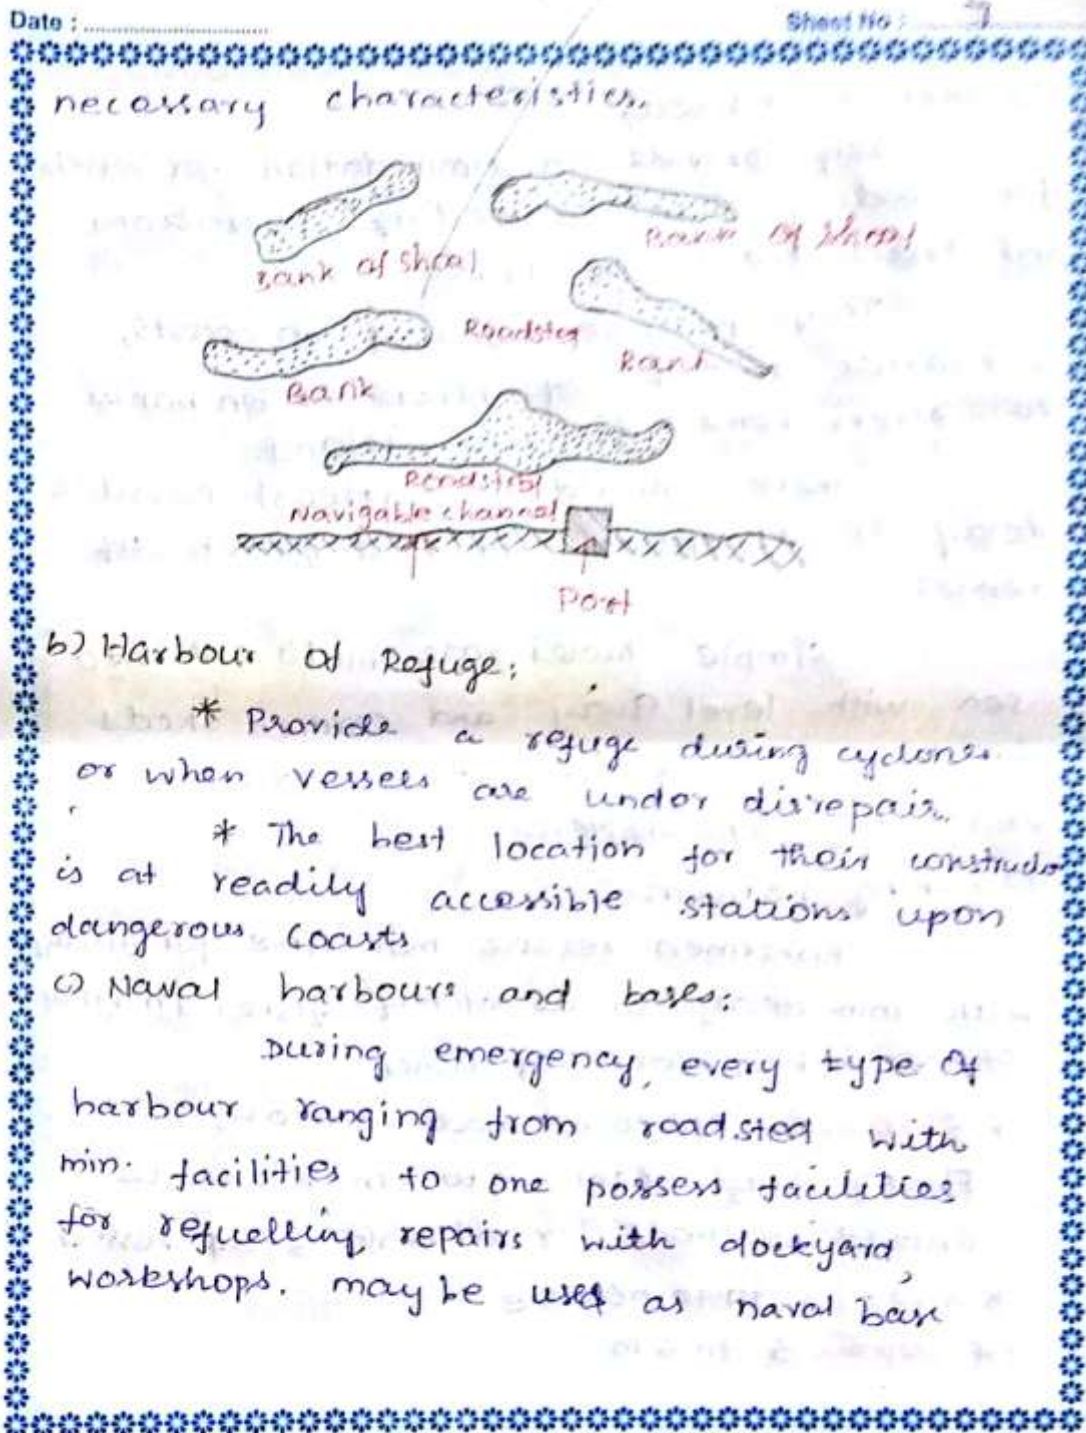 Date :
Sheet No : 7
necessary characteristics.
Bank of Shoal
Bank of Shoal
Roadsted
Bank
Bank
Roadsted
Navigable channel
Port
b) Harbour of Refuge:
* Provide a refuge during cyclones
or when vessels are under disrepair.
* The best location for their construct
is at readily accessible stations upon
dangerous coasts
c) Naval harbours and bases:
During emergency, every type of
harbour ranging from roadsted with
min. facilities to one possess facilities
for refuelling, repairs with dockyard,
workshops. may be used as naval base